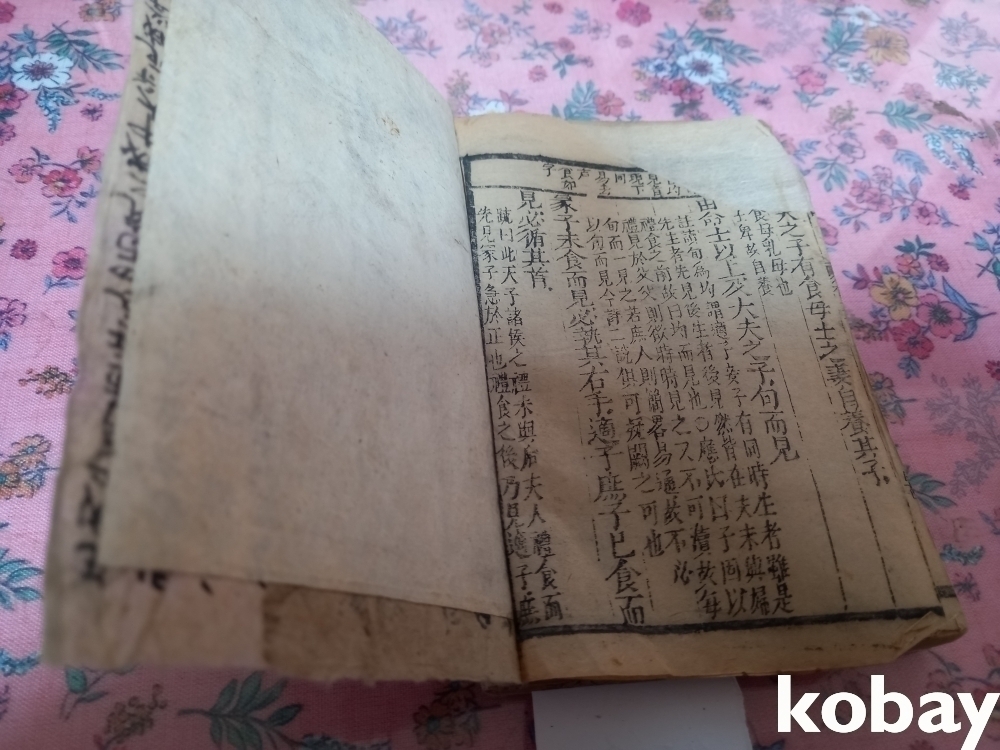 大夫之子有食母士之妻自養其子
食母乳母也
士卑故自養
由命士以上及大夫之子旬而見
註讀旬為均謂適子妾子有同時生者雖是
先生者先見後生者後見然皆在夫未與婦
禮食之前故曰均而見也○應氏曰子固以
禮見於父父則欲時時見之又不可瀆故每
旬而一見之若庶人則簡畧易通故不必
以旬而見今詳二說俱可發闕之可也
冢子未食而見必執其右手適子庶子已食而
見必循其首
疏曰此天子諸侯之禮未與后夫人禮食而
先見冢子急於正也禮食之後乃見適子庶
kobay